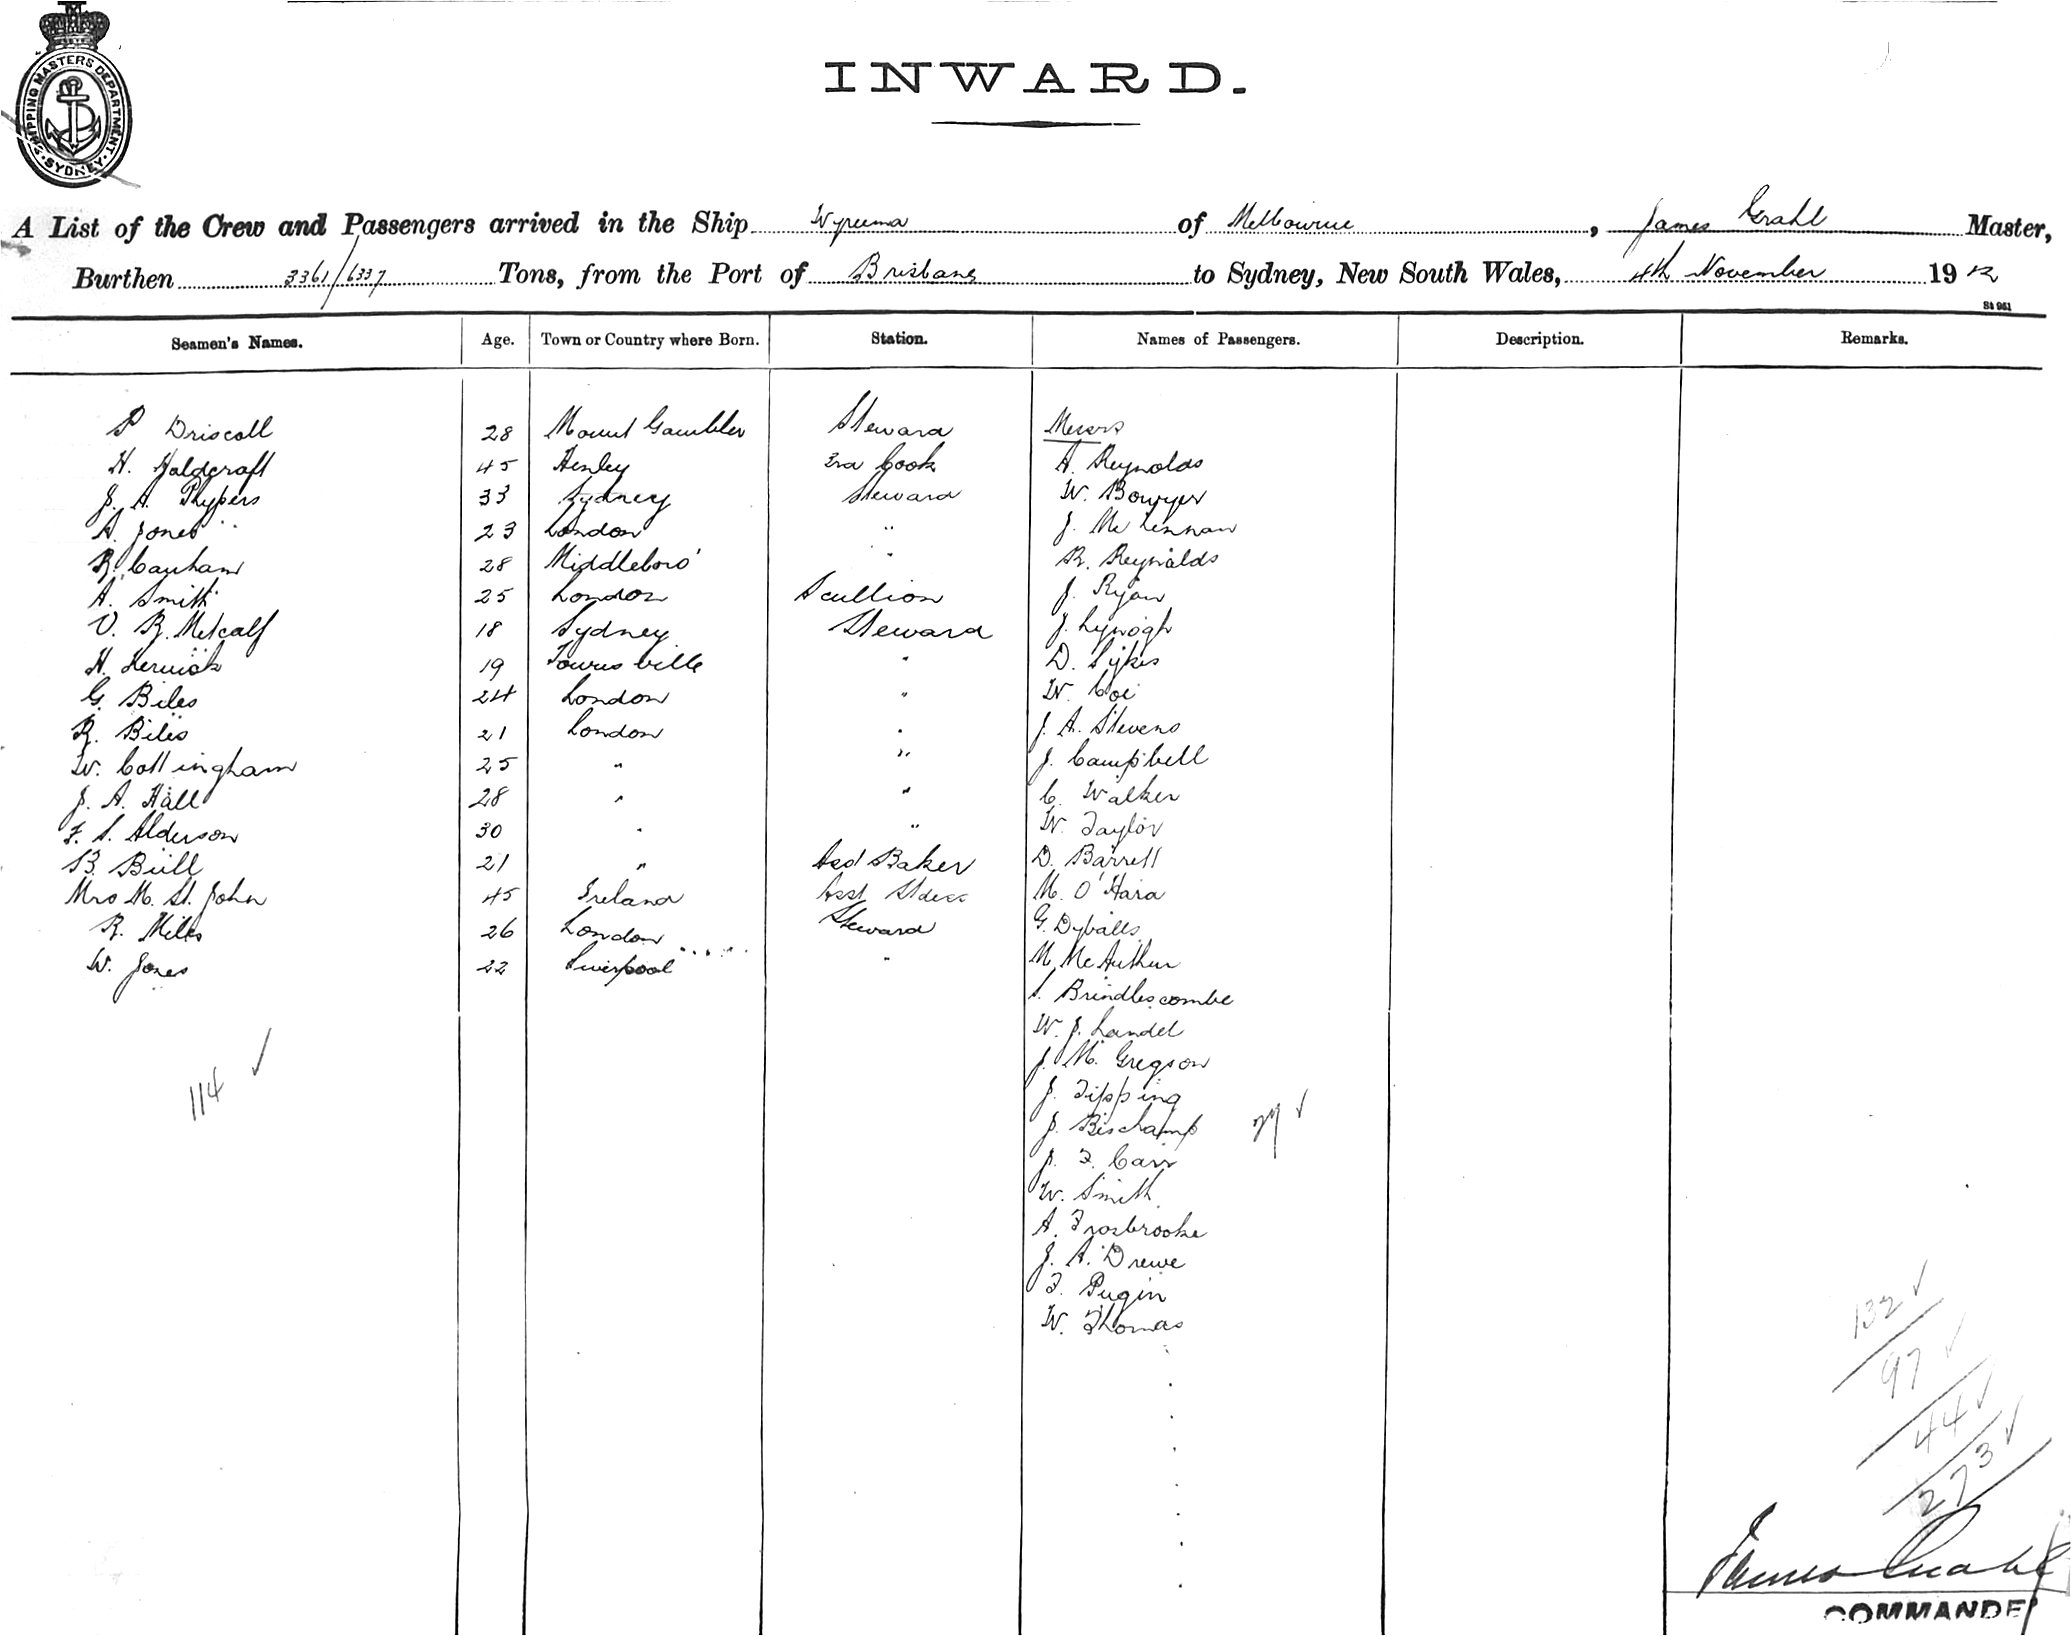 SHIPPING MASTERS DEPARTMENT · SYDNEY ·
INWARD.
A List of the Crew and Passengers arrived in the Ship Wyreema of Melbourne, James Grahl Master,
Burthen 3361/6337 Tons, from the Port of Brisbane to Sydney, New South Wales, 4th November 1912
St 951
Seamen's Names. Age. Town or Country where Born. Station. Names of Passengers. Description. Remarks.
P Driscoll 28 Mount Gambler Steward Messrs
H. Holdcraft 45 Henley 3rd Cook A. Reynolds
J. A. Phypers 33 Sydney Steward W. Bowyer
A. Jones 23 London " J. McLennan
R. Canham 28 Middleboro' " R. Reynolds
A. Smith 25 London Scullion J. Ryan
V. R. Metcalf 18 Sydney Steward J. Lynogh
H. 19 Townsville " D. Sykes
G. Biles 24 London " W. Coe
R. Biles 21 London " J. A. Stevens
W. Cottingham 25 " " J. Campbell
J. A. Hall 28 " " C. Walker
F. S. Alderson 30 " " W. Taylor
B. Bull 21 " Asst Baker D. Barrett
Mrs M. St. John 45 Ireland Asst Stdess M. O'Hara
R. Miles 26 London Steward G. Dyballs
W. Jones 22 Liverpool " M McArthur
S. Brindlescombe
W. J. Landel
J. M. Gregson
114 ✓
J. Tipping
J. Bischamp 27 ✓
J. F. Carr
W. Smith
A. Frosbrooke
J. A. Drewe
F. Pugin
W. Thomas
132 ✓
97 ✓
44 ✓
273 ✓
James Grahl
COMMANDER